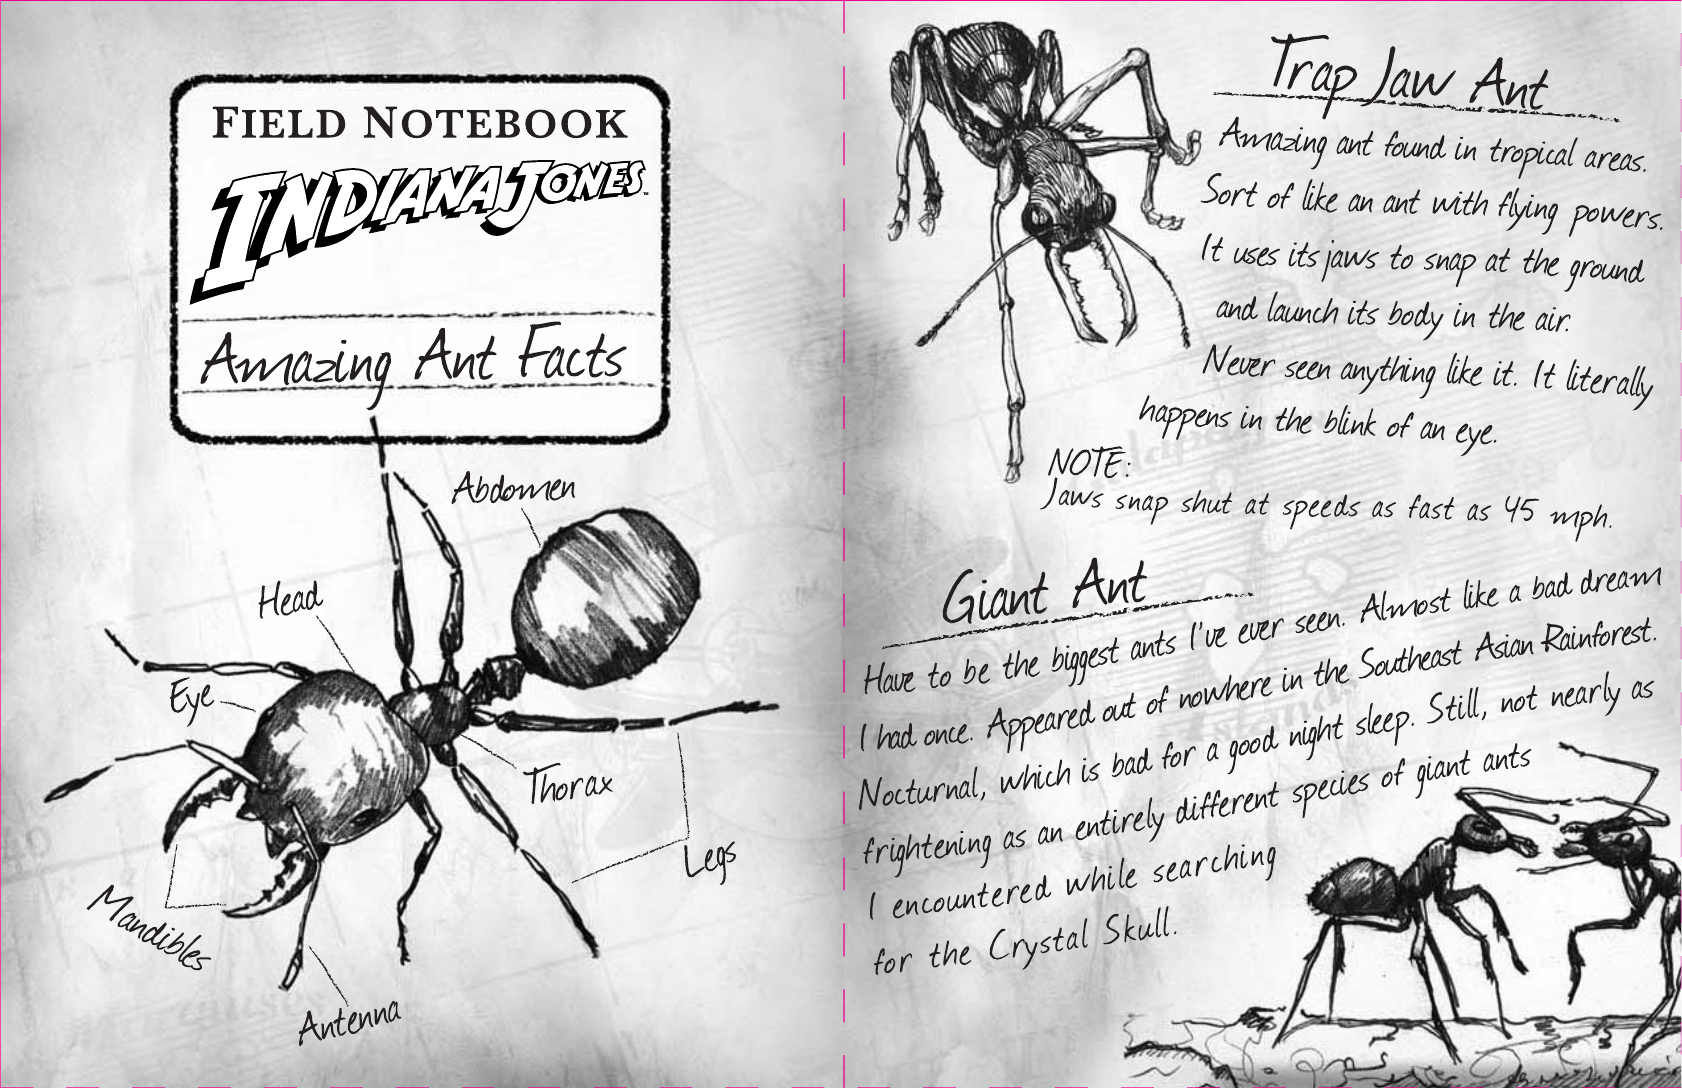 FIELD NOTEBOOK
INDIANA JONES™
Amazing Ant Facts
Abdomen
Head
Eye
Thorax
Legs
Mandibles
Antenna
Trap Jaw Ant
Amazing ant found in tropical areas.
Sort of like an ant with flying powers.
It uses its jaws to snap at the ground
and launch its body in the air.
Never seen anything like it. It literally
happens in the blink of an eye.
NOTE:
Jaws snap shut at speeds as fast as 45 mph.
Giant Ant
Have to be the biggest ants I've ever seen. Almost like a bad dream
I had once. Appeared out of nowhere in the Southeast Asian Rainforest.
Nocturnal, which is bad for a good night sleep. Still, not nearly as
frightening as an entirely different species of giant ants
I encountered while searching
for the Crystal Skull.